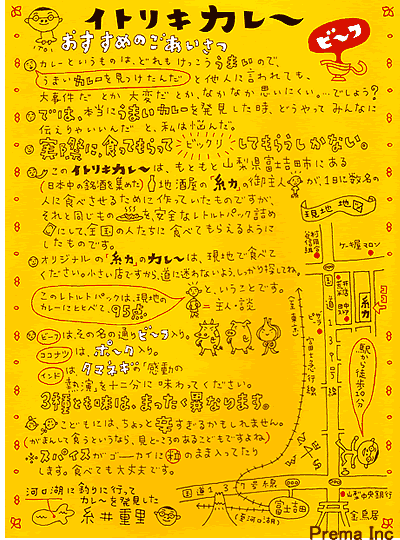 イトリキカレー
おすすめのごあいさつ
ビーフ
カレーというものは、どれもけっこううまいので、
「うまいカレーを見つけたんだ」と他人に言われても、
大事件だとか大変だとか、なかなか思いにくい。…でしょう?
では、本当にうまいカレーを発見した時、どうやってみんなに
伝えりゃいいんだと、私は悩んだ。
実際に食ってもらってビックリしてもらうしかない。
このイトリキカレーは、もともと山梨県富士吉田市にある
(日本中の銘酒を集めた)地酒屋の「糸力」の御主人が、1日に数名の
人に食べさせるために作っていたものですが、
それと同じものを安全なレトルトパック詰め
にして、全国の人たちに食べてもらえるように
したものです。
オリジナルの「糸力」のカレーは、現地で食べて
ください。小さい店ですから、道に迷わないよう、しっかり探してね。
このレトルトパックは、現地の
カレーにとべて、95点
と、ということです。
=主人・談
ビーフは、その名の通りビーフ入り。
ココナツは、ポーク入り。
インドは、タマネギの感動の
熱演を十二分に味わってください。
3種とも味は、まったく異なります。
こどもには、ちょっと辛すぎるかもしれません。
(がまんして食うというなら、見どころのあるこどもですよね)
※スパイスがゴーカイに粒のまま入ってたり
します。食べても大丈夫です。
河口湖に釣りに行って
カレーを発見した
糸井重里
現地地図
ケーキ屋マロン
糸力
国道139号線
富士急行線
駅から徒歩10分
国道137号線
(至河口湖)
富士吉田
山梨中央銀行
金鳥居
Prema Inc